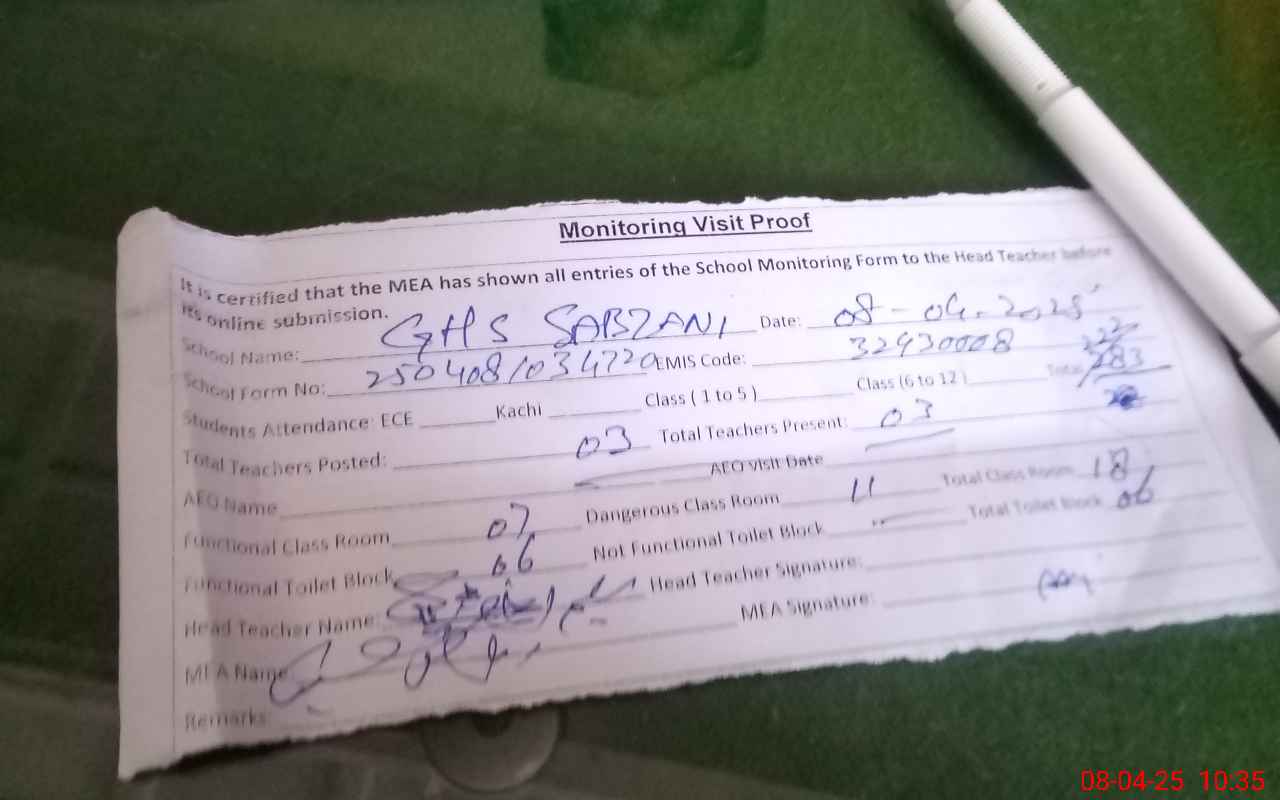 Monitoring Visit Proof
It is certified that the MEA has shown all entries of the School Monitoring Form to the Head Teacher before
its online submission.
School Name: GHS SABZANI Date: 08-04-2025
School Form No: 250408/034720 EMIS Code: 32930008
Students Attendance: ECE Kachi Class ( 1 to 5 ) Class (6 to 12 ) Total 283
Total Teachers Posted: 03 Total Teachers Present: 03
AEO Name AEO visit Date
Functional Class Room 07 Dangerous Class Room 11 Total Class Room 18
Functional Toilet Block 06 Not Functional Toilet Block Total Toilet Block 06
Head Teacher Name: Head Teacher Signature:
MEA Name MEA Signature:
Remarks
08-04-25 10:35